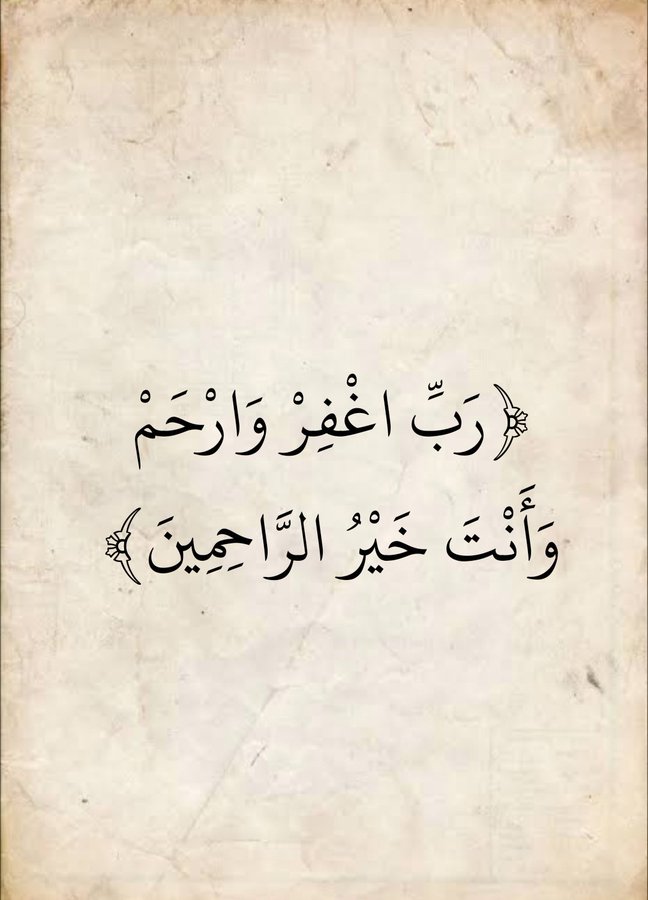 ﴿رَبِّ اغْفِرْ وَارْحَمْ
وَأَنْتَ خَيْرُ الرَّاحِمِينَ﴾